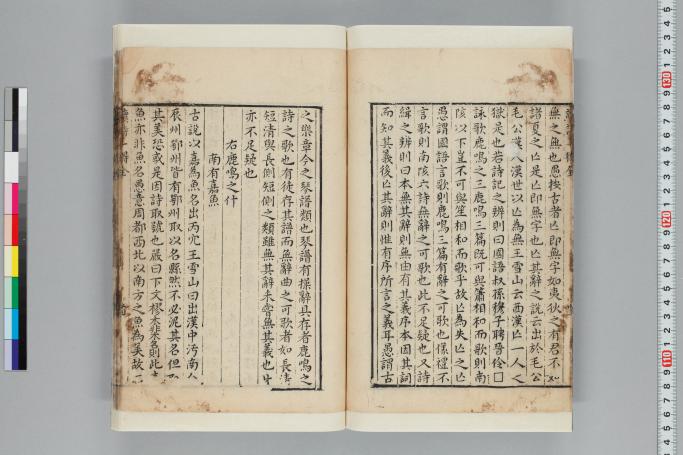 無之無也愚按古者亾即無字如夷狄之有君不如
諸夏之亾是亾即無字也亾其辭之說云出於毛公
毛公漢人漢世以亾為無王雪山云西漢亾一人之
獄是也若詩記之辨則曰國語叔孫穆子聘晉伶□
詠歌鹿鳴之三鹿鳴三篇既可與簫相和而歌則南
陔以下豈不可與笙相和而歌乎故亾為失亾之亾
愚謂國語言歌則鹿鳴三篇有辭之可歌也儀禮不
言歌則南陔六詩無辭之可歌也此不足疑也又詩
緝之辨則曰本無其辭則無由有其義序本因其詞
而知其義後亾其辭則惟有序所言之義耳愚謂古
之樂章今之琴譜類也琴譜有操辭具存者鹿鳴之
詩之歌也有徒存其譜而無辭曲之可歌者如長清
短清與長側短側之類雖無其辭未嘗無其義也此
亦不足疑也
右鹿鳴之什
南有嘉魚
古說以嘉為魚名出丙穴王雪山曰出漢中沔南
辰州鄂州皆有鄂州取以名縣然不必泥其名但
其美恐或是因詩取號也嚴曰下文樛木非木名則此
魚亦非魚名愚意周都西北以南方之魚為美故